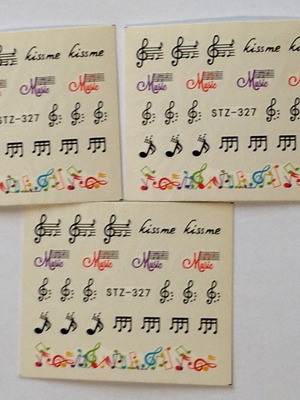 kiss me kiss me
Music Music
STZ-327
kiss me kiss
Music Music Music
STZ-327
kiss me kiss me
Music Music Music Music
STZ-327